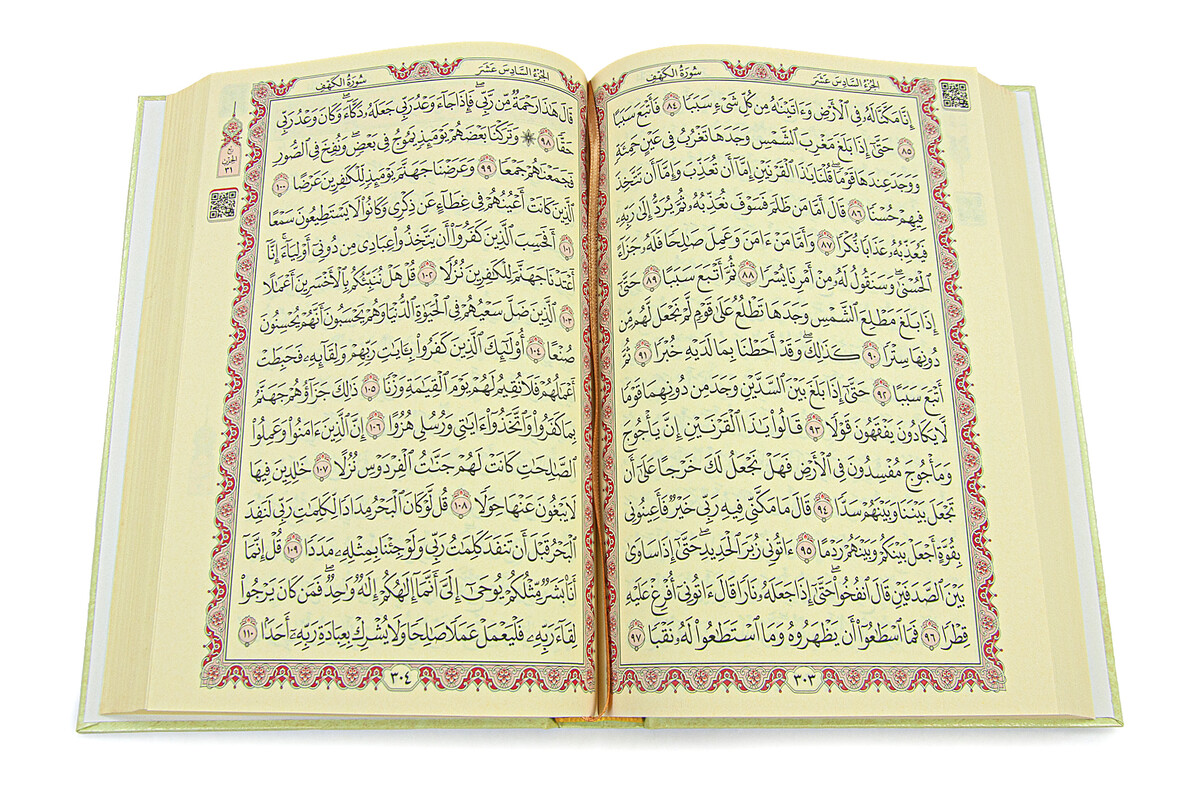 الجزء السادس عشر
سورة الكهف
إِنَّا مَكَّنَّا لَهُۥ فِى ٱلْأَرْضِ وَءَاتَيْنَٰهُ مِن كُلِّ شَىْءٍ سَبَبًا ٨٤ فَأَتْبَعَ سَبَبًا
٨٥ حَتَّىٰٓ إِذَا بَلَغَ مَغْرِبَ ٱلشَّمْسِ وَجَدَهَا تَغْرُبُ فِى عَيْنٍ حَمِئَةٍ
وَوَجَدَ عِندَهَا قَوْمًا ۗ قُلْنَا يَٰذَا ٱلْقَرْنَيْنِ إِمَّآ أَن تُعَذِّبَ وَإِمَّآ أَن تَتَّخِذَ
فِيهِمْ حُسْنًا ٨٦ قَالَ أَمَّا مَن ظَلَمَ فَسَوْفَ نُعَذِّبُهُۥ ثُمَّ يُرَدُّ إِلَىٰ رَبِّهِۦ
فَيُعَذِّبُهُۥ عَذَابًا نُّكْرًا ٨٧ وَأَمَّا مَنْ ءَامَنَ وَعَمِلَ صَٰلِحًا فَلَهُۥ جَزَآءً
ٱلْحُسْنَىٰ ۖ وَسَنَقُولُ لَهُۥ مِنْ أَمْرِنَا يُسْرًا ٨٨ ثُمَّ أَتْبَعَ سَبَبًا ٨٩ حَتَّىٰٓ
إِذَا بَلَغَ مَطْلِعَ ٱلشَّمْسِ وَجَدَهَا تَطْلُعُ عَلَىٰ قَوْمٍ لَّمْ نَجْعَل لَّهُم مِّن
دُونِهَا سِتْرًا ٩٠ كَذَٰلِكَ ۖ وَقَدْ أَحَطْنَا بِمَا لَدَيْهِ خُبْرًا ٩١ ثُمَّ
أَتْبَعَ سَبَبًا ٩٢ حَتَّىٰٓ إِذَا بَلَغَ بَيْنَ ٱلسَّدَّيْنِ وَجَدَ مِن دُونِهِمَا قَوْمًا
لَّا يَكَادُونَ يَفْقَهُونَ قَوْلًا ٩٣ قَالُوا۟ يَٰذَا ٱلْقَرْنَيْنِ إِنَّ يَأْجُوجَ
وَمَأْجُوجَ مُفْسِدُونَ فِى ٱلْأَرْضِ فَهَلْ نَجْعَلُ لَكَ خَرْجًا عَلَىٰٓ أَن
تَجْعَلَ بَيْنَنَا وَبَيْنَهُمْ سَدًّا ٩٤ قَالَ مَا مَكَّنِّى فِيهِ رَبِّى خَيْرٌ فَأَعِينُونِى
بِقُوَّةٍ أَجْعَلْ بَيْنَكُمْ وَبَيْنَهُمْ رَدْمًا ٩٥ ءَاتُونِى زُبَرَ ٱلْحَدِيدِ ۖ حَتَّىٰٓ إِذَا سَاوَىٰ
بَيْنَ ٱلصَّدَفَيْنِ قَالَ ٱنفُخُوا۟ ۖ حَتَّىٰٓ إِذَا جَعَلَهُۥ نَارًا قَالَ ءَاتُونِىٓ أُفْرِغْ عَلَيْهِ
قِطْرًا ٩٦ فَمَا ٱسْطَٰعُوٓا۟ أَن يَظْهَرُوهُ وَمَا ٱسْتَطَٰعُوا۟ لَهُۥ نَقْبًا ٩٧
٣٠٣
الجزء السادس عشر
سورة الكهف
قَالَ هَٰذَا رَحْمَةٌ مِّن رَّبِّى ۖ فَإِذَا جَآءَ وَعْدُ رَبِّى جَعَلَهُۥ دَكَّآءَ ۖ وَكَانَ وَعْدُ رَبِّى
حَقًّا ٩٨ ۞ وَتَرَكْنَا بَعْضَهُمْ يَوْمَئِذٍ يَمُوجُ فِى بَعْضٍ ۖ وَنُفِخَ فِى ٱلصُّورِ
فَجَمَعْنَٰهُمْ جَمْعًا ٩٩ وَعَرَضْنَا جَهَنَّمَ يَوْمَئِذٍ لِّلْكَٰفِرِينَ عَرْضًا ١٠٠
ٱلَّذِينَ كَانَتْ أَعْيُنُهُمْ فِى غِطَآءٍ عَن ذِكْرِى وَكَانُوا۟ لَا يَسْتَطِيعُونَ سَمْعًا
١٠١ أَفَحَسِبَ ٱلَّذِينَ كَفَرُوٓا۟ أَن يَتَّخِذُوا۟ عِبَادِى مِن دُونِىٓ أَوْلِيَآءَ ۚ إِنَّآ
أَعْتَدْنَا جَهَنَّمَ لِلْكَٰفِرِينَ نُزُلًا ١٠٢ قُلْ هَلْ نُنَبِّئُكُم بِٱلْأَخْسَرِينَ أَعْمَٰلًا
١٠٣ ٱلَّذِينَ ضَلَّ سَعْيُهُمْ فِى ٱلْحَيَوٰةِ ٱلدُّنْيَا وَهُمْ يَحْسَبُونَ أَنَّهُمْ يُحْسِنُونَ
صُنْعًا ١٠٤ أُو۟لَٰٓئِكَ ٱلَّذِينَ كَفَرُوا۟ بِـَٔايَٰتِ رَبِّهِمْ وَلِقَآئِهِۦ فَحَبِطَتْ
أَعْمَٰلُهُمْ فَلَا نُقِيمُ لَهُمْ يَوْمَ ٱلْقِيَٰمَةِ وَزْنًا ١٠٥ ذَٰلِكَ جَزَآؤُهُمْ جَهَنَّمُ
بِمَا كَفَرُوا۟ وَٱتَّخَذُوٓا۟ ءَايَٰتِى وَرُسُلِى هُزُوًا ١٠٦ إِنَّ ٱلَّذِينَ ءَامَنُوا۟ وَعَمِلُوا۟
ٱلصَّٰلِحَٰتِ كَانَتْ لَهُمْ جَنَّٰتُ ٱلْفِرْدَوْسِ نُزُلًا ١٠٧ خَٰلِدِينَ فِيهَا
لَا يَبْغُونَ عَنْهَا حِوَلًا ١٠٨ قُل لَّوْ كَانَ ٱلْبَحْرُ مِدَادًا لِّكَلِمَٰتِ رَبِّى لَنَفِدَ
ٱلْبَحْرُ قَبْلَ أَن تَنفَدَ كَلِمَٰتُ رَبِّى وَلَوْ جِئْنَا بِمِثْلِهِۦ مَدَدًا ١٠٩ قُلْ إِنَّمَآ
أَنَا۠ بَشَرٌ مِّثْلُكُمْ يُوحَىٰٓ إِلَىَّ أَنَّمَآ إِلَٰهُكُمْ إِلَٰهٌ وَٰحِدٌ ۖ فَمَن كَانَ يَرْجُوا۟
لِقَآءَ رَبِّهِۦ فَلْيَعْمَلْ عَمَلًا صَٰلِحًا وَلَا يُشْرِكْ بِعِبَادَةِ رَبِّهِۦٓ أَحَدًۢا ١١٠
٣٠٤
الحزب
٣١